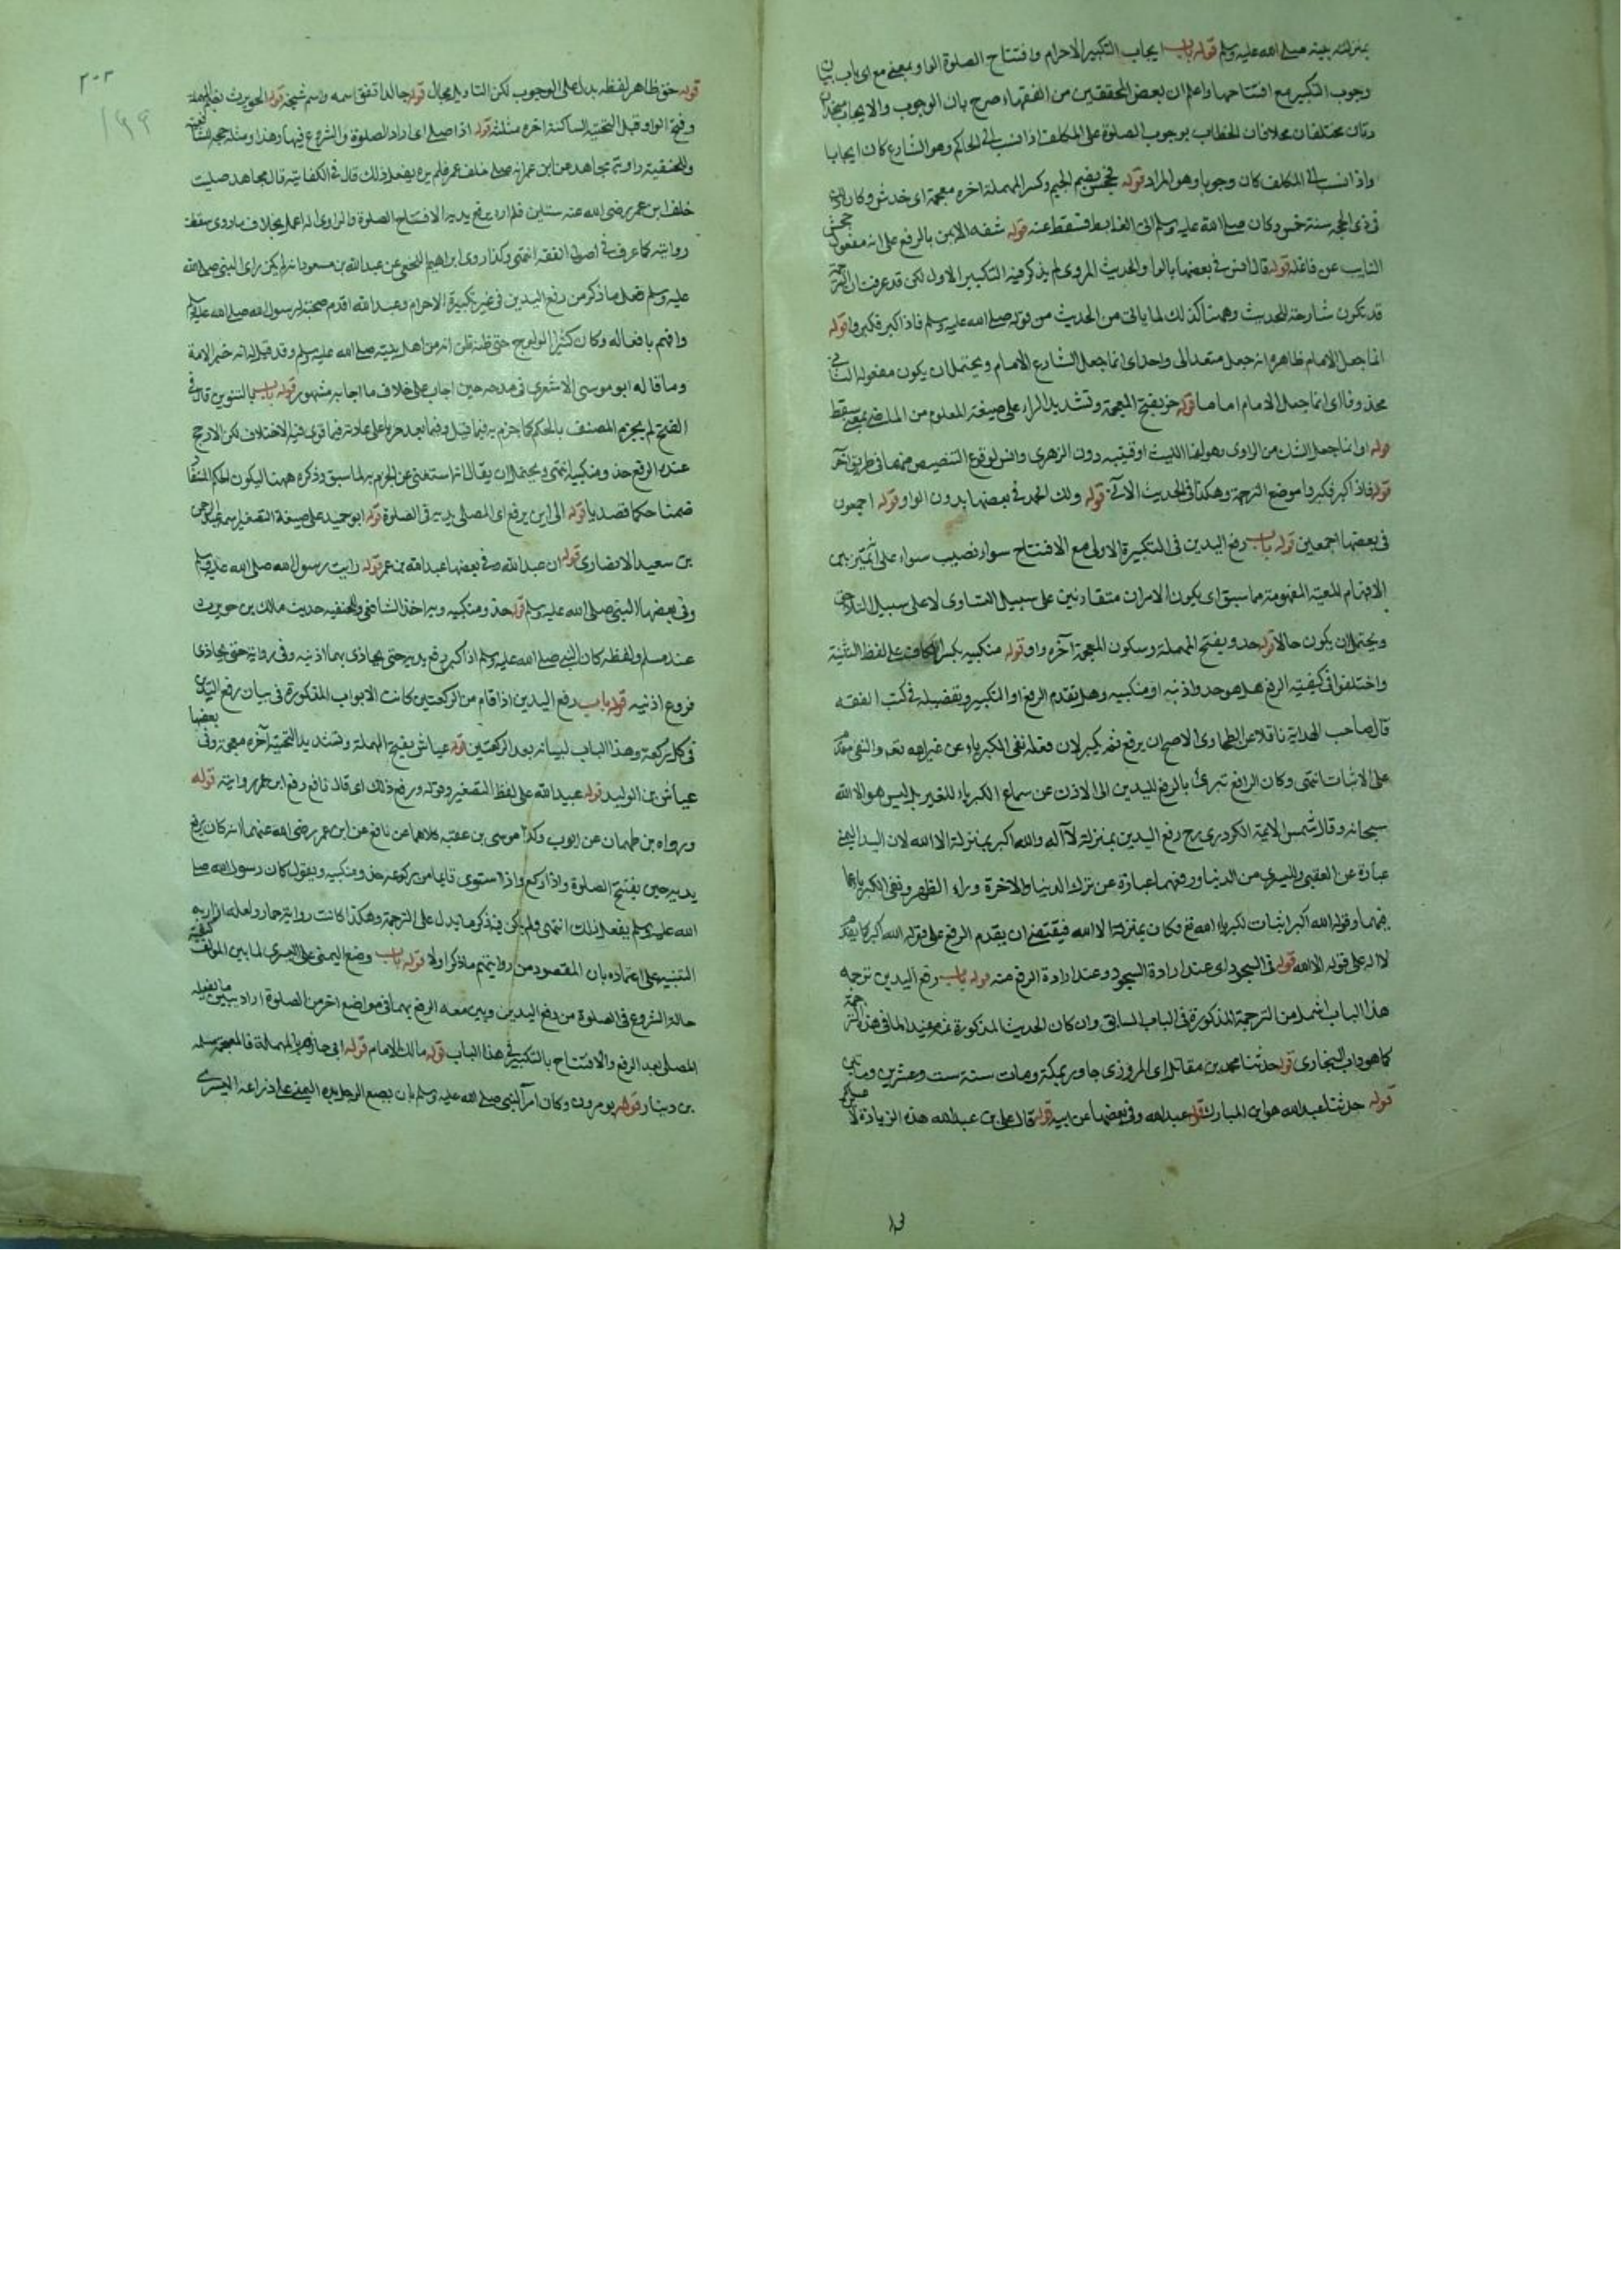 بمنزلة بيته صلى الله عليه وسلم قوله باب ايجاب التكبير الاحرام وافتتاح الصلوة الواو بمعنى مع اى باب بيان
وجوب التكبير مع افتتاحها واعلم ان بعض المحققين من الفقهاء صرح بان الوجوب والايجاب متحدان
ذاتان مختلفان فان الخطاب بوجوب الصلوة على المكلف اذا نسب الى الحاكم وهو الشارع كان ايجابا
واذا نسب الى المكلف كان وجوبا وهو المراد قوله فجحش بضم الجيم وكسر المهملة اخره معجمة اى خدش وكان
فى ذى الحجة سنة خمس وكان صلى الله عليه وسلم اتى الغابة فسقط عنه قوله شقه الايمن بالرفع على انه مفعول جحش
النايب عن فاعله قوله قال انس فى بعضها بالواو والحديث المروى لم يذكر فيه التكبير الاول لكن قد عرفت ان الترجمة
قد تكون شارحة للحديث وههنا كذلك لما ياتى من الحديث من قوله صلى الله عليه وسلم فاذا كبر فكبروا قوله
انما جعل الامام ظاهره انه جعل متعد الى واحد اى انما جعل الشارع الامام ويحتمل ان يكون مفعوله الثانى
محذوفا اى انما جعل الامام اماما قوله خر بفتح المعجمة وتشديد الراء على صيغة المعلوم من الماضى بمعنى سقط
قوله او انما جعل الشك من الراوى وهو اما الليث او قتيبة دون الزهرى وانس لوقوع التنصيص منهما فى طريق آخر
قوله فاذا كبر فكبروا موضع الترجمة وهكذا فى الحديث الآتى قوله ولك الحمد فى بعضها بدون الواو قوله اجمعون
فى بعضها اجمعين قوله باب رفع اليدين فى التكبيرة الاولى مع الافتتاح سواء نصب سواء على التمييز من
الابهام للمعية المفهومة مما سبق اى يكون الامران متقارنين على سبيل التساوى لا على سبيل التلاحق
ويحتمل ان يكون حالا قوله حذو بفتح المهملة وسكون المعجمة آخره واو قوله منكبيه بكسر الكاف على لفظ التثنية
واختلفوا فى كيفية الرفع هل هو حذو اذنيه او منكبيه وهل تقدم الرفع او التكبير وتفصيله فى كتب الفقه
قال صاحب الهداية ناقلا عن الطحاوى الاصح ان يرفع ثم يكبر لان فعله نفى الكبرياء عن غير الله تعم والنفى مقدم
على الاثبات انتهى وكان الرافع تبرئ بالرفع لليدين الى الاذن عن سماع الكبرياء للغير بل ليس هو الا الله
سبحانه وقال شمس الايمة الكردرى رح رفع اليدين بمنزلة لا اله والله اكبر بمنزلة الا الله لان اليد اليمنى
عبارة عن العقبى واليسرى من الدنيا ورفعهما عبارة عن ترك الدنيا والاخرة وراء الظهر ونفى الكبرياء عما
فيهما وقوله الله اكبر اثبات لكبرياء الله تع فكان بمنزلة الا الله فيقتضى ان يقدم الرفع على قوله الله اكبر كما يقدم
لا اله على قوله الا الله قوله فى السجود اى عند ارادة السجود وعند ارادة الرفع منه قوله باب رفع اليدين ترجمة
هذا الباب اشمل من الترجمة المذكورة فى الباب السابق وان كان الحديث المذكورة ثمه مفيدا لما فى هذا الترجمة
كما هو داب البخارى قوله حدثنا محمد بن مقاتل اى المروزى جاور بمكة ومات سنة ست وعشرين ومايتى
قوله حدثنا عبد الله هو ابن المبارك قوله عبد الله وفى بعضها عن ابيه قوله قال على بن عبد الله هذه الزيادة لا
٢٠٢
١٩٩
قوله حق ظاهر لفظه يدل على الوجوب لكن التاويل مجال قوله خالد اتفق اسمه واسم شيخه قوله الحويرث بضم المهملة
وفتح الواو قبل التحتية الساكنة اخره مثلثة قوله اذا صلى اى اراد الصلوة والشروع فيها وهذا ومثله حجه الشافعية
وللحنفية رواية مجاهد عن ابن عمر انه صلى خلف عمر فلم يره يفعل ذلك قال فى الكفاية قال مجاهد صليت
خلف ابن عمر رضى الله عنه سنتين فلم اره يرفع يديه الا لافتتاح الصلوة والراوى اذا عمل بخلاف ما روى سقطت
روايته كما عرف فى اصول الفقه انتهى وكذا روى ابراهيم النخعى عن عبد الله بن مسعود انه لم يكن راى النبى صلى الله
عليه وسلم فعل ما ذكر من رفع اليدين فى غير تكبيرة الاحرام وعبد الله اقدم صحبة لرسول الله صلى الله عليه وسلم
وافهم بافعاله وكان كثير الولوج حتى ظنه ظن انه من اهل بيته صلى الله عليه وسلم وقد قيل انه خير الامة
وما قاله ابو موسى الاشعرى فى مدحه حين اجاب على خلاف ما اجابه مشهور قوله باب بالتنوين قال فى
الفتح لم يجزم المصنف بالحكم كما جزم به فيما قبل وفيما بعد جريا على عادته فيما قوى فيه الاختلاف لكن الارجح
عنده الرفع حذو منكبيه انتهى ويحتمل ان يقال انه استغنى عن الجزم به لما سبق وذكره ههنا ليكون الحكم المستفاد
ضمنا حكما قصديا قوله الى اين يرفع اى المصلى يديه فى الصلوة قوله ابو حميد على صيغة التصغير اسمه عبد الرحمن
بن سعيد الانصارى قوله ان عبد الله وفى بعضها عبد الله بن عمر قوله رايت رسول الله صلى الله عليه وسلم
وفى بعضها النبى صلى الله عليه وسلم قوله حذو منكبيه وبه اخذ الشافعى وللحنفية حديث مالك بن حويرث
عند مسلم ولفظه كان النبى صلى الله عليه وسلم اذا كبر رفع يديه حتى يحاذى بهما اذنيه وفى رواية حتى يحاذى
فروع اذنيه قوله باب رفع اليدين اذا قام من الركعتين كانت الابواب المذكورة فى بيان رفع اليدين
فى كل ركعة وهذا الباب لبيانه بعد الركعتين قوله عياش بفتح المهملة وتشديد التحتية آخره معجمة وفى بعضها
عياش بن الوليد قوله عبيد الله على لفظ التصغير وقوله ورفع ذلك اى قال نافع رفع ابن عمر روايته قوله
ورواه بن طهمان عن ايوب وكذا موسى بن عقبة كلاهما عن نافع عن ابن عمر رضى الله عنهما انه كان يرفع
يديه حين يفتتح الصلوة واذا ركع واذا استوى قايما من ركوعه حذو منكبيه ويقول كان رسول الله صلى
الله عليه وسلم يفعل ذلك انتهى ولم يكن فيه ذكر ما يدل على الترجمة وهكذا كانت رواية حماد ولعله اراد به
التنبيه على اعتماده بان المقصود من روايتهم ما ذكر اولا قوله باب وضع اليمنى على اليسرى لما بين المولف كيفية
حالة الشروع فى الصلوة من رفع اليدين وبين معه الرفع بهما فى مواضع اخر من الصلوة اراد يبين ما يفعله
المصلى بعد الرفع والافتتاح بالتكبير فى هذا الباب قوله مالك الامام قوله ابى حازم بالمهملة فالمعجمة سلمة
بن دينار قوله يومرون وكان امر النبى صلى الله عليه وسلم بان يضع الرجل يده اليمنى على ذراعه اليسرى